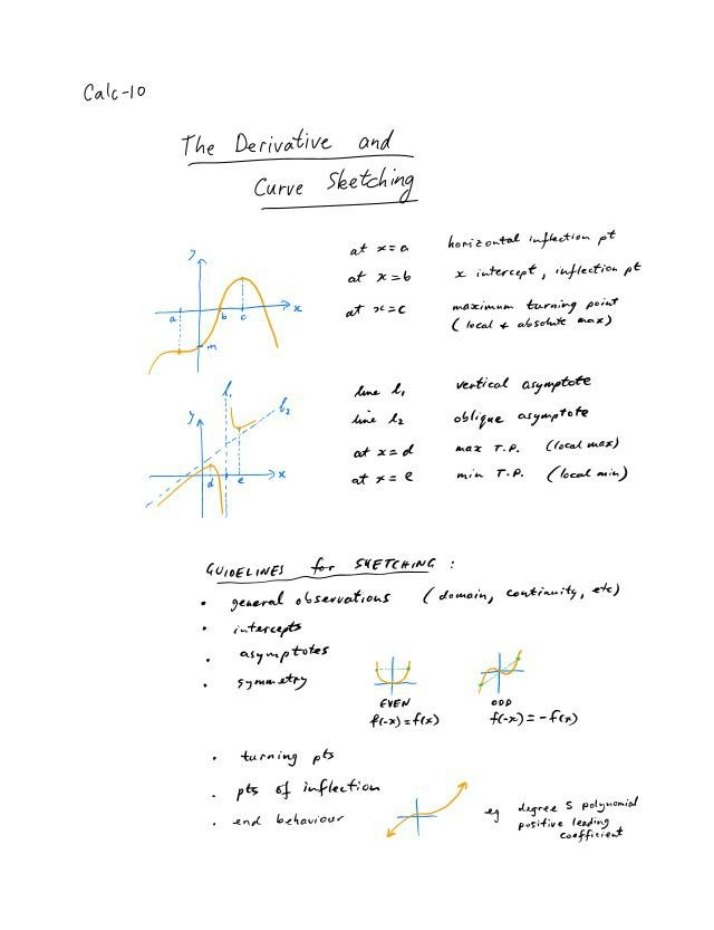 Calc-10
The Derivative and
Curve Sketching
y
x
a
b
c
m
at x=a horizontal inflection pt
at x=b x intercept, inflection pt
at x=c maximum turning point
(local & absolute max)
y
x
l₁
l₂
d
e
line l₁ vertical asymptote
line l₂ oblique asymptote
at x=d max T.P. (local max)
at x=e min T.P. (local min)
GUIDELINES for SKETCHING :
• general observations (domain, continuity, etc)
• intercepts
• asymptotes
• symmetry
EVEN
f(-x)=f(x)
ODD
f(-x)=-f(x)
• turning pts
• pts of inflection
• end behaviour
eg degree 5 polynomial
positive leading
coefficient